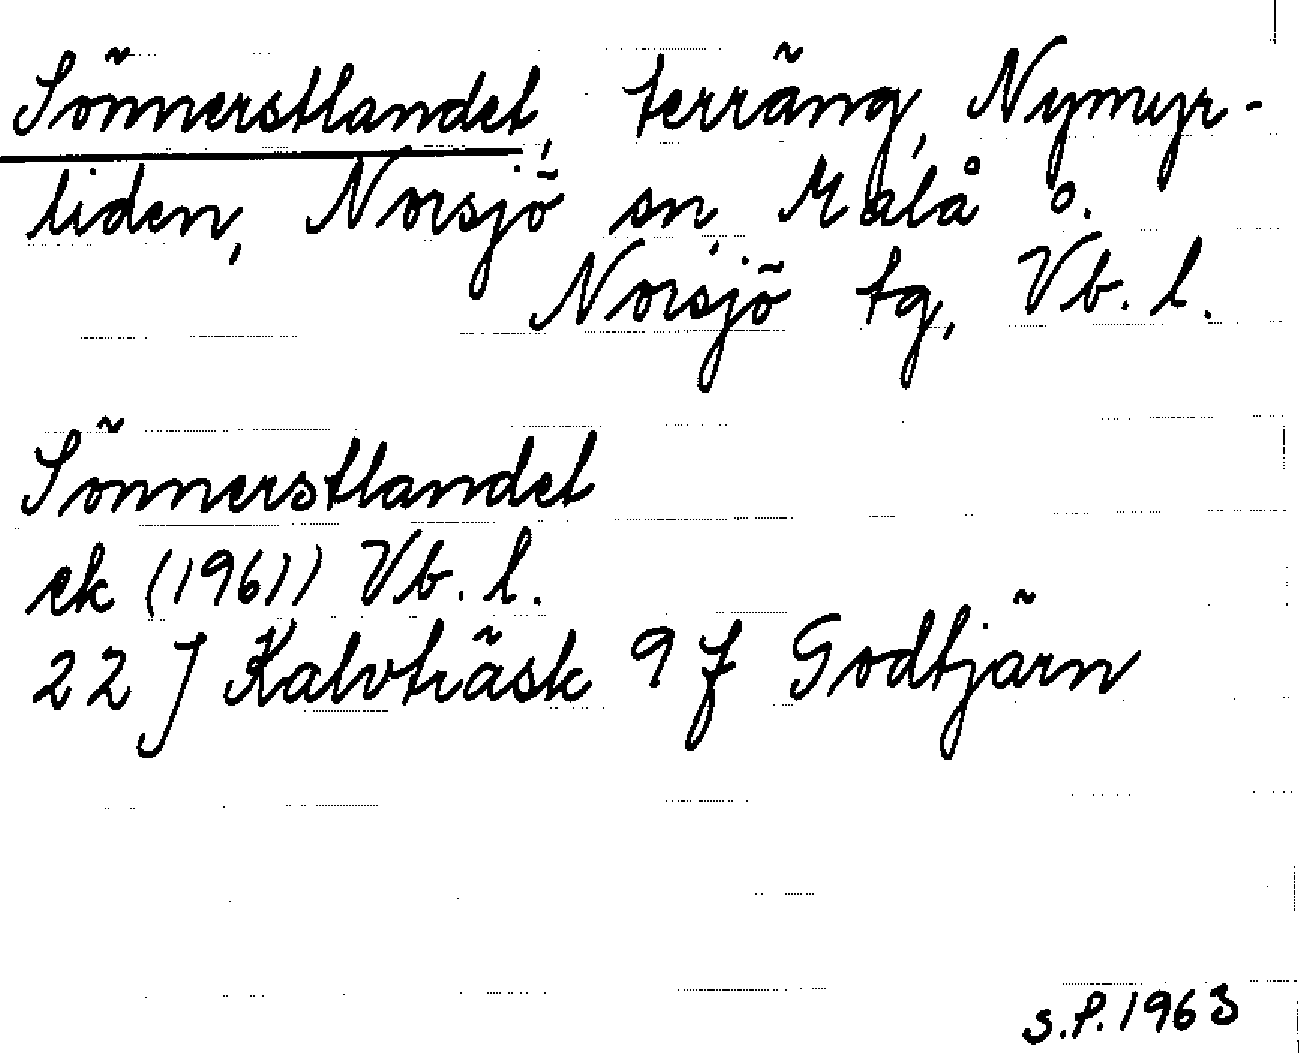 Sönnerstlandet, terräng, Nymyr-
liden, Norsjö sn, Malå o.
Norsjö tg, Vb. l.
Sönnerstlandet
ek (1961) Vb. l.
22 J Kalvträsk 9 f Godtjärn
S.P. 1963